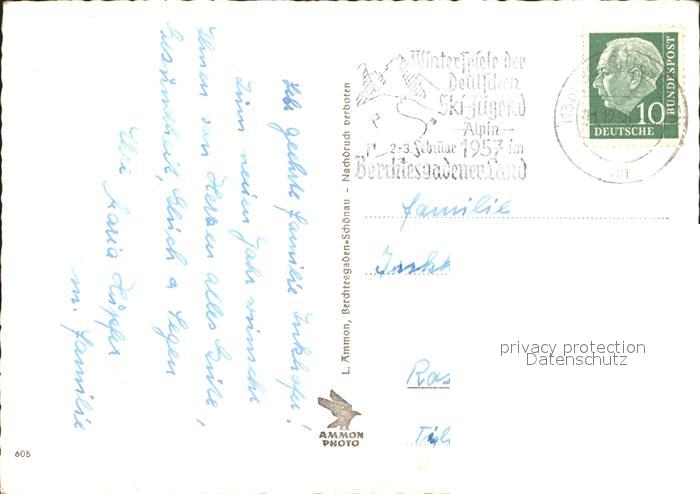 Sehr geehrte Familie Inkhofer!
Zum neuen Jahr wünsche
Ihnen von Herzen alles Gute,
Gesundheit, Glück u. Segen
Ihre Maria
m. Familie
L. Ammon, Berchtesgaden=Schönau – Nachdruck verboten
Winterspiele der
Deutschen
Ski-Jugend
– Alpin –
2.-3. Februar 1957 im
Berchtesgadener Land
10
DEUTSCHE
BUNDESPOST
Familie
privacy protection
Datenschutz
AMMON
PHOTO
605